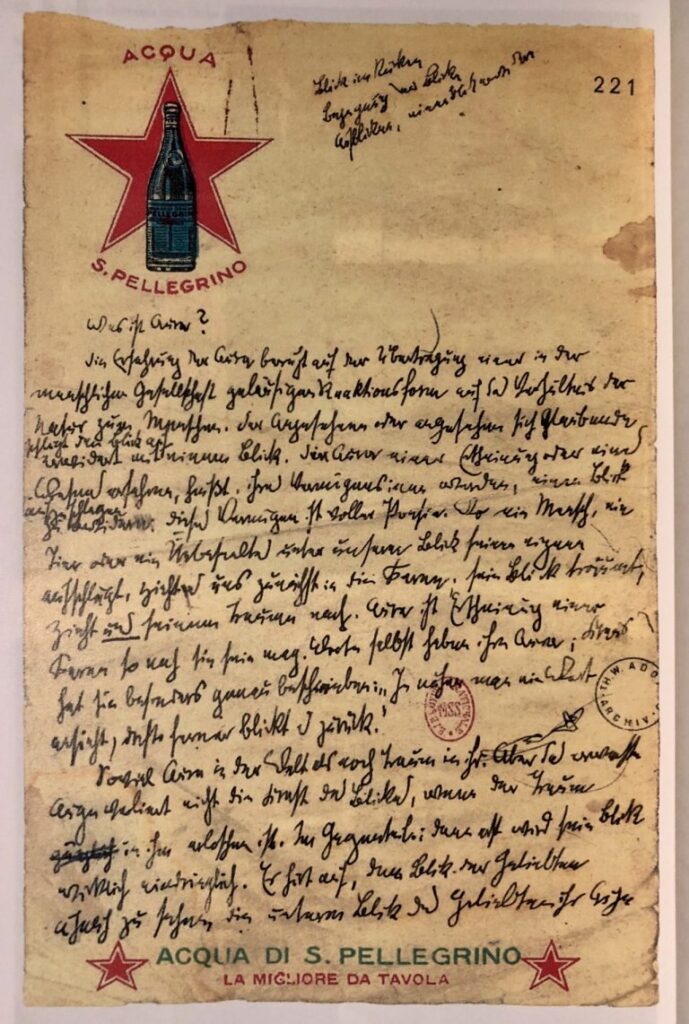 ACQUA
S. PELLEGRINO
PELLEGRINO
Blick im Rücken
Begegnung der Blicke
Aufblicken,
221
Was ist Aura?
Die Erfahrung der Aura beruht auf der Übertragung einer in der
menschlichen Gesellschaft geläufigen Reaktionsform auf das Verhältnis der
Natur zum Menschen. Der Angesehene oder angesehen sich Glaubende
schlägt den Blick auf
erwidert mit einem Blick. Die Aura einer Erscheinung oder eines
Wesens erfahren, heißt, ihres Vermögens inne werden, einen Blick
aufzuschlagen
zu erwidern. Dieses Vermögen ist voller Poesie. Wo ein Mensch, ein
Tier oder ein Unbeseeltes unter unserm Blick seinen eignen
aufschlägt, zieht es uns zunächst in die Ferne. Sein Blick träumt,
zieht uns seinem Traume nach. Aura ist Erscheinung einer
Ferne so nah sie sein mag. Worte selbst haben ihre Aura; Kraus
hat sie besonders genau beschrieben: „Je näher man ein Wort
ansieht, desto ferner blickt es zurück."
TH. W. ADO
ARCHIV
Soviel Aura in der Welt als noch Traum in ihr. Aber das erwachte
Auge verlernt nicht die Kraft des Blicks, wenn der Traum
in ihm erloschen ist. Im Gegenteil: dann erst wird sein Blick
wirklich eindringlich. Er hört auf, dem Blick der Geliebten
ähnlich zu sehen, die unterm Blick des Geliebten ihr Auge
ACQUA DI S. PELLEGRINO
LA MIGLIORE DA TAVOLA